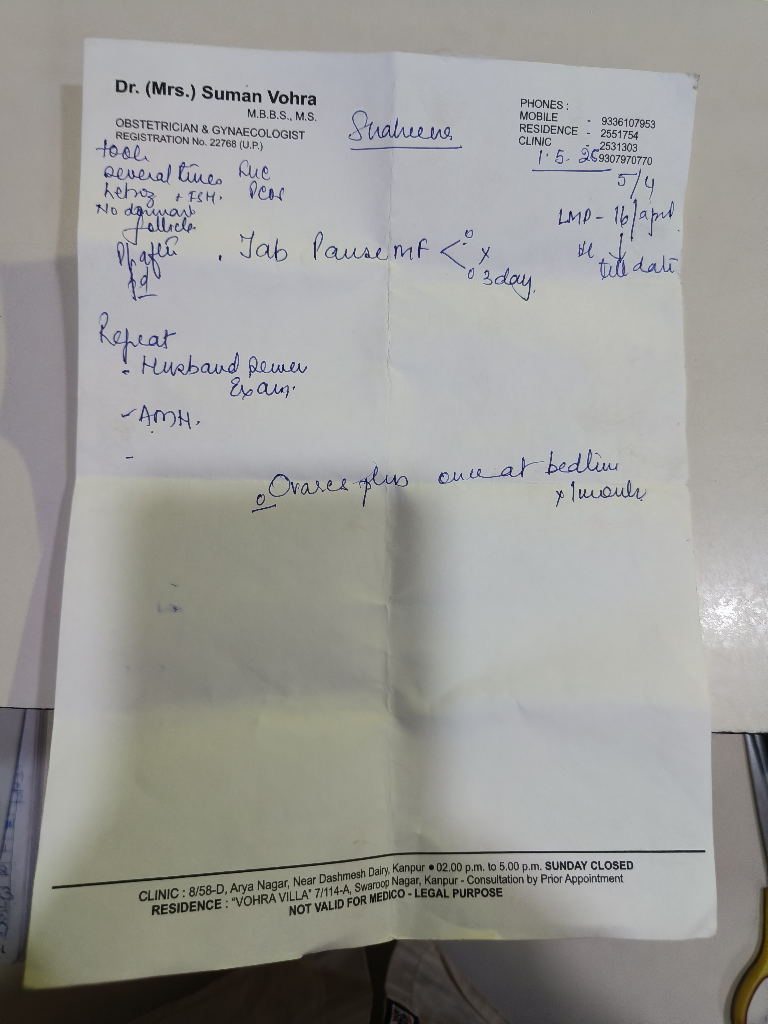 Dr. (Mrs.) Suman Vohra
M.B.B.S., M.S.
OBSTETRICIAN & GYNAECOLOGIST
REGISTRATION No. 22768 (U.P.)
PHONES :
MOBILE - 9336107953
RESIDENCE - 2551754
CLINIC - 2531303
9307970770
Shaheena
1.5.26
5/4
LMP - 16/april
till date
took
several times
Letroz + FSH.
No dominant
follicle
PCOS
. Tab Pause MF < x
3 day
Repeat
- Husband Semen
Exam.
- AMH.
-
Ovares plus once at bedtime
x 1 month
CLINIC : 8/58-D, Arya Nagar, Near Dashmesh Dairy, Kanpur ● 02.00 p.m. to 5.00 p.m. SUNDAY CLOSED
RESIDENCE : "VOHRA VILLA" 7/114-A, Swaroop Nagar, Kanpur - Consultation by Prior Appointment
NOT VALID FOR MEDICO - LEGAL PURPOSE